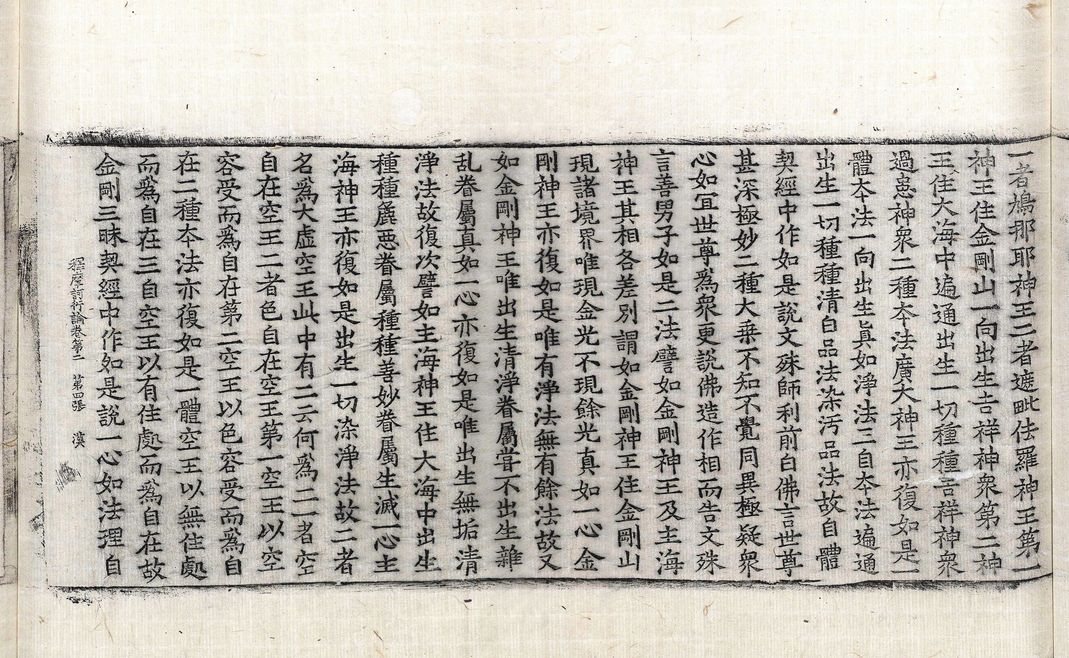 一者鳩那耶神王二者遮毗佉羅神王第一
神王住金剛山一向出生吉祥神衆第二神
王住大海中遍通出生一切種種吉祥神衆
過患神衆二種夲法廣大神王亦復如是一
體夲法一向出生眞如淨法二自夲法遍通
出生一切種種清白品法染汚品法故自體
契經中作如是說文殊師利前白佛言世尊
甚深極妙二種大乗不知不覺同異極疑衆
心如冝世尊爲衆更說佛造作相而告文殊
言善男子如是二法譬如金剛神王及主海
神王其相各差別謂如金剛神王住金剛山
現諸境界唯現金光不現餘光真如一心金
剛神王亦復如是唯有淨法無有餘法故又
如金剛神王唯出生清淨眷屬甞不出生雜
乱眷屬真如一心亦復如是唯出生無垢清
淨法故復次譬如主海神王住大海中出生
種種麁悪眷屬種種善妙眷屬生滅一心主
海神王亦復如是出生一切染淨法故二者
名爲大虚空王此中有二云何爲二一者空
自在空王二者色自在空王第一空王以空
容受而爲自在第二空王以色容受而爲自
在二種夲法亦復如是一體空王以無住處
而爲自在三自空王以有住處而爲自在故
金剛三昧契經中作如是說一心如法理自
釋摩訶衍論卷第二 第四張 漠